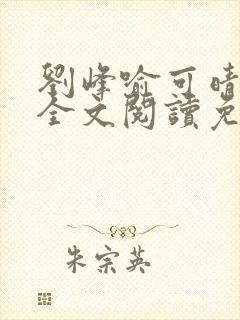 劉峰喻可晴
全文閱讀免
朱宗英